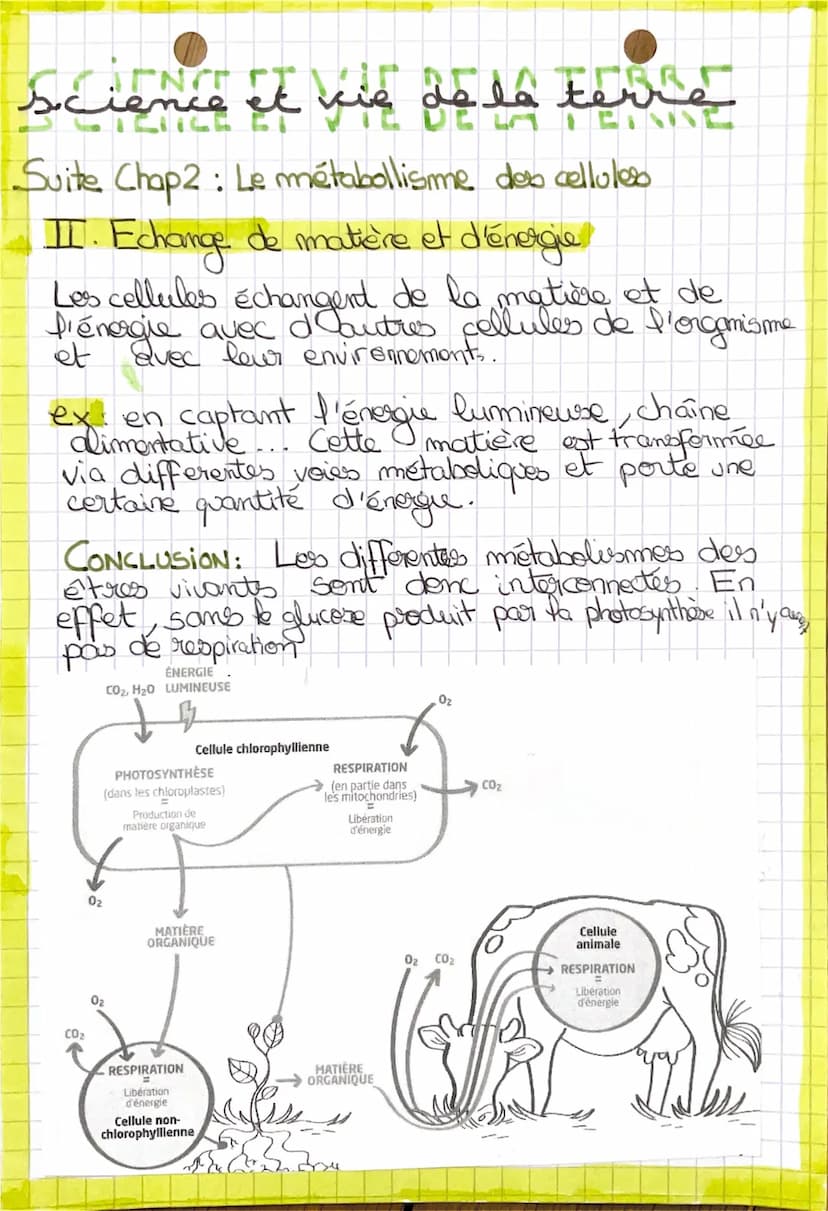 SCIENCE ET VIE DE LA TERRE
science et vie de la terre
Suite Chap2 : Le métabollisme des cellules
II. Echange de matière et d'énergie
Les cellules échangent de la matière et de
l'énergie avec d'autres cellules de l'organisme
et avec leur environnement.
ex : en captant l'énergie lumineuse, chaîne
alimentative ... Cette matière est transformée
via differentes voies métaboliques et porte une
certaine quantité d'énergie.
CONCLUSION : Les differentes métabolismes des
êtres vivants sont donc interconnectés. En
effet, sans le glucose produit par la photosynthèse il n'y a
pas de respiration
CO2, H2O
ÉNERGIE
LUMINEUSE
O2
Cellule chlorophyllienne
PHOTOSYNTHÈSE
(dans les chloroplastes)
=
Production de
matière organique
RESPIRATION
(en partie dans
les mitochondries)
=
Libération
d'énergie
CO2
O2
MATIÈRE
ORGANIQUE
O2
CO2
RESPIRATION
=
Libération
d'énergie
Cellule non-
chlorophyllienne
MATIÈRE
ORGANIQUE
O2 CO2
Cellule
animale
RESPIRATION
=
Libération
d'énergie